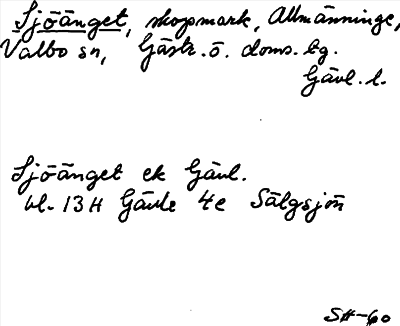 Sjöänget, skogsmark, Allmänninge,
Valbo sn, Gästr. ö. doms. tg.
Gävl. l.
Sjöänget ek Gävl.
bl. 13H Gävle 4e Sälgsjön
SH-60